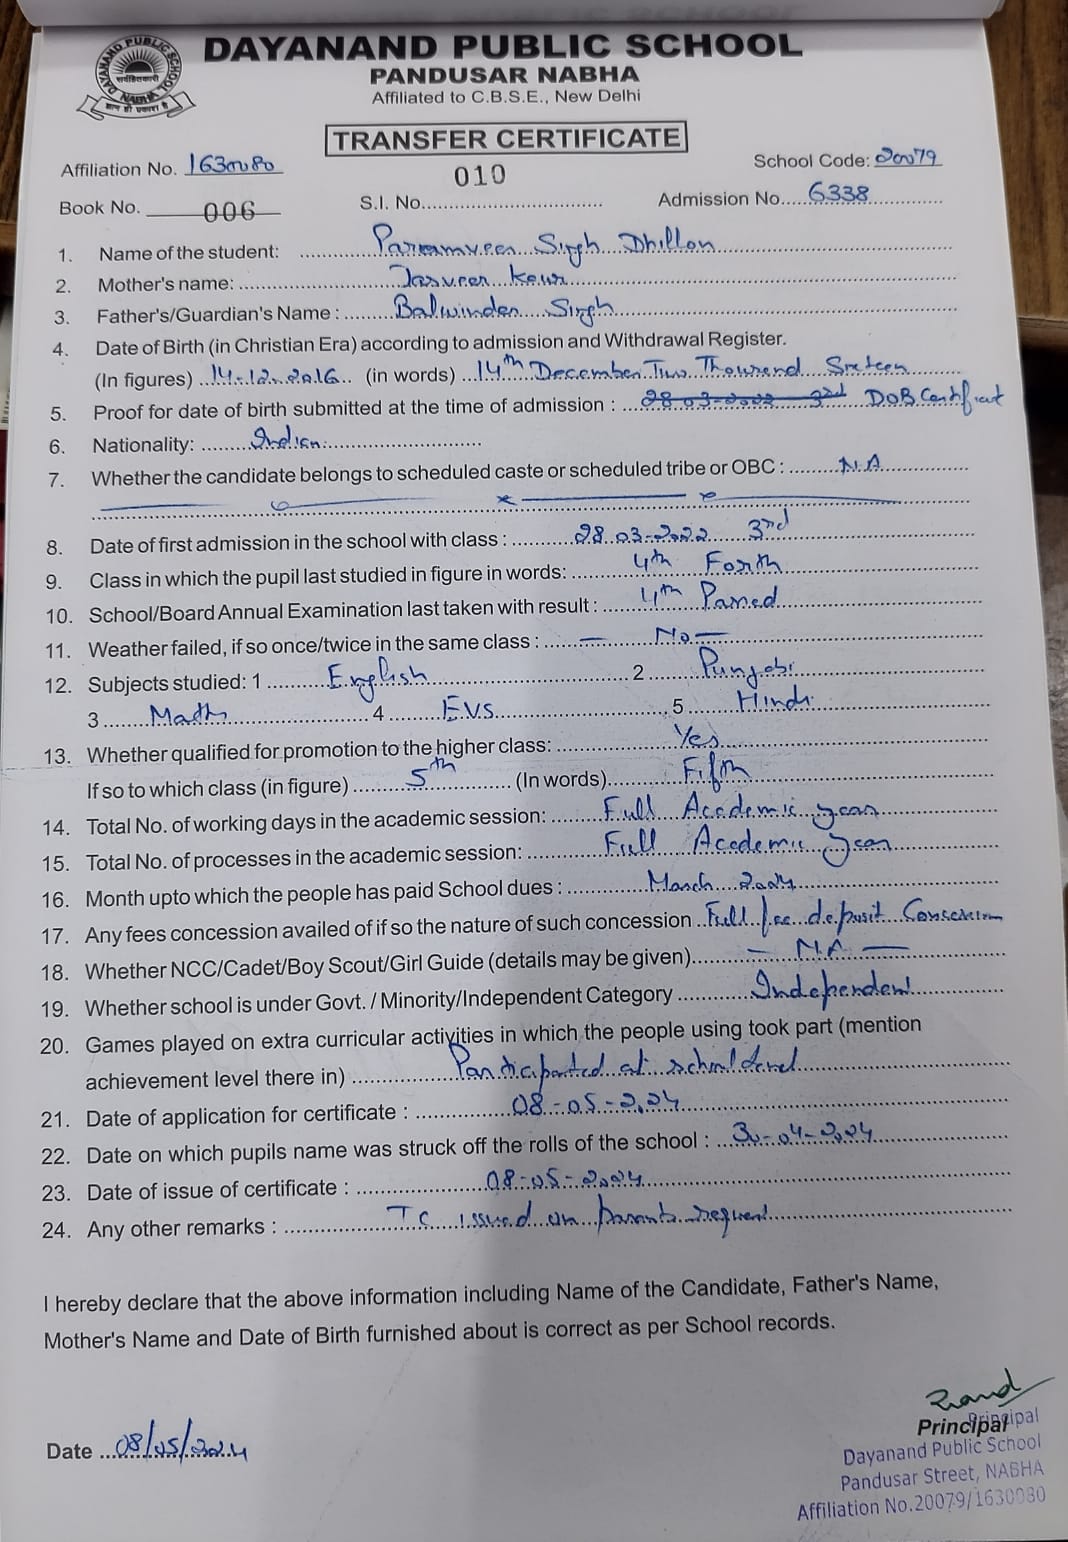 DAYANAND PUBLIC SCHOOL
PANDUSAR NABHA
Affiliated to C.B.S.E., New Delhi
DAYANAND PUBLIC SCHOOL
NABHA
TRANSFER CERTIFICATE
Affiliation No. 1630080
010
School Code: 20079
Book No. 006
S.I. No.
Admission No. 6338
1. Name of the student: Paramveer Singh Dhillon
2. Mother's name: Jasveer Kaur
3. Father's/Guardian's Name : Balwinder Singh
4. Date of Birth (in Christian Era) according to admission and Withdrawal Register.
(In figures) 14-12-2016 (in words) 14th December Two Thousend Sixteen
5. Proof for date of birth submitted at the time of admission : 28-03-2022 3rd DOB Certificat
6. Nationality: Indian
7. Whether the candidate belongs to scheduled caste or scheduled tribe or OBC : N.A
8. Date of first admission in the school with class : 28.03-2022 3rd
9. Class in which the pupil last studied in figure in words: 4th Forth
10. School/Board Annual Examination last taken with result : 4th Passed
11. Weather failed, if so once/twice in the same class : — No —
12. Subjects studied: 1 English 2 Punjabi
3 Math 4 EVS 5 Hindi
13. Whether qualified for promotion to the higher class: Yes
If so to which class (in figure) 5th (In words) Fifth
14. Total No. of working days in the academic session: Full Academic year
15. Total No. of processes in the academic session: Full Academic year
16. Month upto which the people has paid School dues : March 2024
17. Any fees concession availed of if so the nature of such concession Full fee deposit
18. Whether NCC/Cadet/Boy Scout/Girl Guide (details may be given) — N.A —
19. Whether school is under Govt. / Minority/Independent Category Independent
20. Games played on extra curricular activities in which the people using took part (mention
achievement level there in) Participated at school level
21. Date of application for certificate : 08-05-2024
22. Date on which pupils name was struck off the rolls of the school : 30-04-2024
23. Date of issue of certificate : 08-05-2024
24. Any other remarks : TC issued on parents request
I hereby declare that the above information including Name of the Candidate, Father's Name,
Mother's Name and Date of Birth furnished about is correct as per School records.
Date 08/05/2024
Principal
Principal
Dayanand Public School
Pandusar Street, NABHA
Affiliation No.20079/1630080